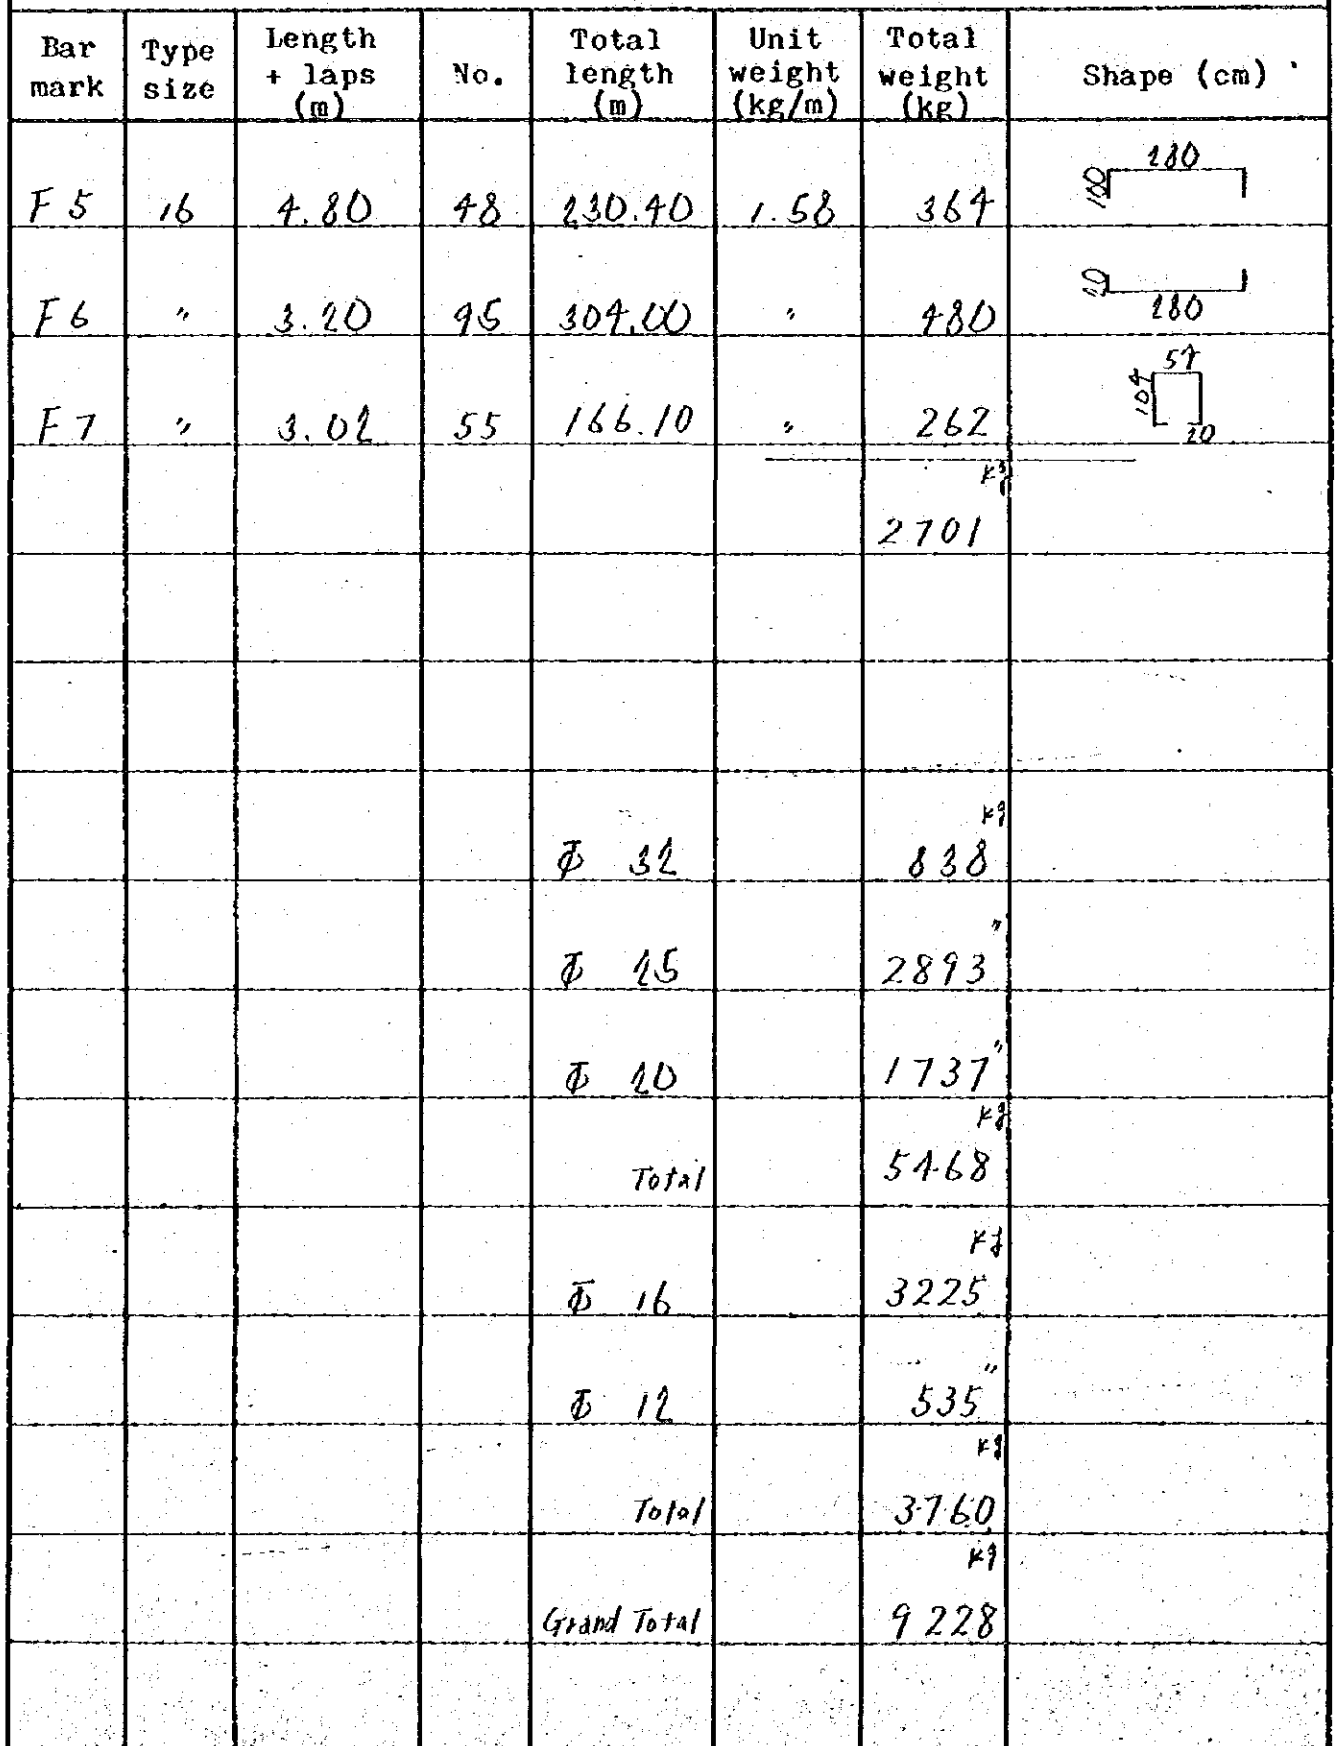 Bar mark | Type size | Length + laps (m) | No. | Total length (m) | Unit weight (kg/m) | Total weight (kg) | Shape (cm)
F 5 | 16 | 4.80 | 48 | 230.40 | 1.58 | 364 | 100 280
F 6 | 〃 | 3.20 | 95 | 304.00 | 〃 | 480 | 20 280
F 7 | 〃 | 3.02 | 55 | 166.10 | 〃 | 262 | 104 54 20
kg
2701
kg
Φ 32 | 838
Φ 25 | 2893 〃
Φ 20 | 1737 〃
kg
Total | 5468
kg
Φ 16 | 3225
Φ 12 | 535 〃
kg
Total | 3760
kg
Grand Total | 9228